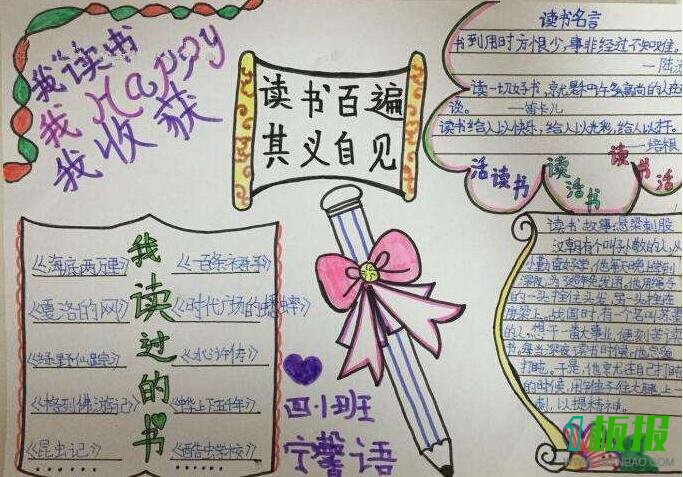 我读书
我Happy
我收获
读书百遍
其义自见
读书名言
书到用时方恨少，事非经过不知难。
—陆
读一切好书，就是和许多高尚的人在
谈。 —笛卡儿
读书给人以快乐，给人以光彩，给人以才干。
—培根
活读书
读活书
读书活
我读过的书
《海底两万里》
《夏洛的网》
《绿野仙踪》
《格列佛游记》
《昆虫记》
《时代广场的蟋蟀》
《水浒传》
《中华上下五千年》
《酷虫学校》
四小班
宁馨语
读书故事：悬梁刺股
汉朝有个叫孙敬的人，从
小勤奋好学，他每天晚上学到
深夜，为
一头拴住头发，另一头拴在
房梁上。战国时，有一个名叫苏秦
的人，想干一番大事业，便刻苦读
书。每当深夜读书时候，他总
打盹。于是，他就在自己打盹
的时候，用锥子往大腿上一
刺，以提精神。
板报